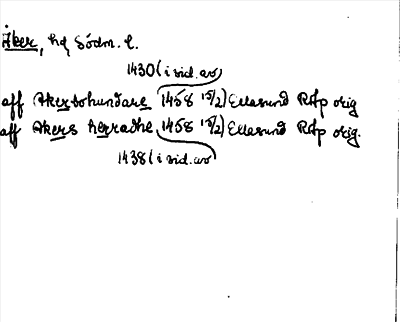 Åker, hd, Södm. l.
1430 (i vid. av
aff Akerbohundare 1458 15/2) Ellasund RAp orig
aff Akers herradhe 1458 15/2) Ellasund RAp orig.
1438 (i vid. av